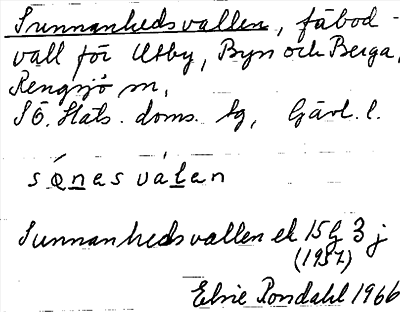 Sunnanhedsvallen, fäbod-
vall för Utby, Byn och Berga,
Rengsjö sn,
SÖ. Häls. doms. hg, Gävl. l.
sǫ́nas válan
Sunnanhedsvallen ek 15G 3j
(1957)
Elsie Rondahl 1966